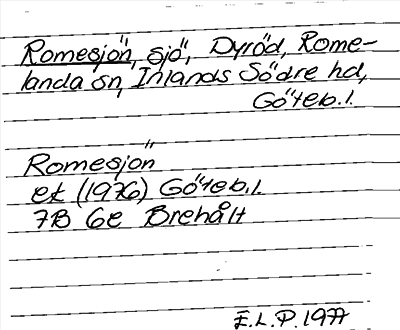 Romesjön, sjö, Dyröd, Rome-
landa sn, Inlands Södre hd,
Göteb.l.
Romesjön
ek (1976) Göteb.l.
7B 6e Brehålt
E.L.P. 1977